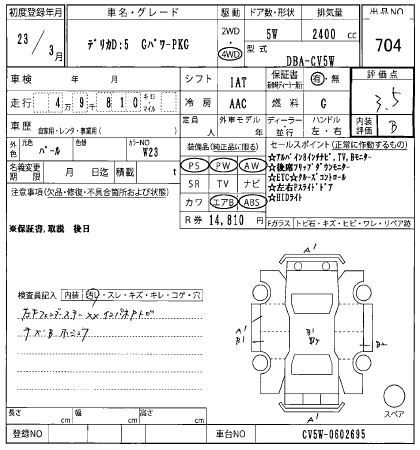 初度登録年月 車名・グレード 駆動 ドア数・形状 排気量 出品NO
23年/3月 デリカD:5 GパワーPKG 2WD・4WD 5W 2400cc 704
型式 DBA-CV5W
車検 年 月 シフト IAT 保証書(新車時ディーラー発行) 有・無 評価点
走行 4万9千810キロ・マイル 冷房 AAC 燃料 G 3.5
車歴 自家用・レンタ・事業用( ) 定員 人 外車モデル 年 ディーラー・並行 ハンドル 左・右 内装評価 B
外色 元色 パール 色替 カラーNO W23
装備品(純正品に限る) セールスポイント(正常に作動するもの)
名義変更期限 月 日迄 積載 t
PS PW AW
SR TV ナビ
カワ エアB ABS
R券 14,810円
☆アルパイン8インチナビ,TV,Bモニター
☆後席フリップダウンモニター
☆ETC☆クルーズコントロール
☆左右Pスライドドア
☆HIDライト
注意事項(欠品・修復・不具合箇所および状態)
※保証書,取説 後日
Fガラス トビ石・キズ・ヒビ・ワレ・リペア跡
検査員記入 内装 汚れ・スレ・キズ・キレ・コゲ・穴
A'
A'
B1
B1
B2
A'
スペア
長さ cm 幅 cm 高さ cm
登録NO 車台NO CV5W-0602695